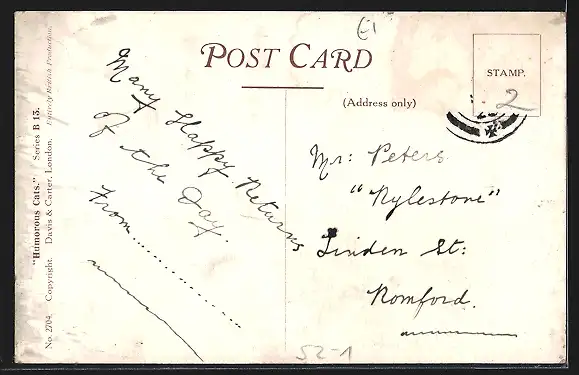 E1
POST CARD
STAMP.
2
(Address only)
Many Happy Returns
of the Day.
From..................
Mr: Peters
"Rylestone"
Linden St:
Romford.
52-1
"Humorous Cats." Series B 13.
No. 2704. Copyright. Davis & Carter, London. Entirely British Production.